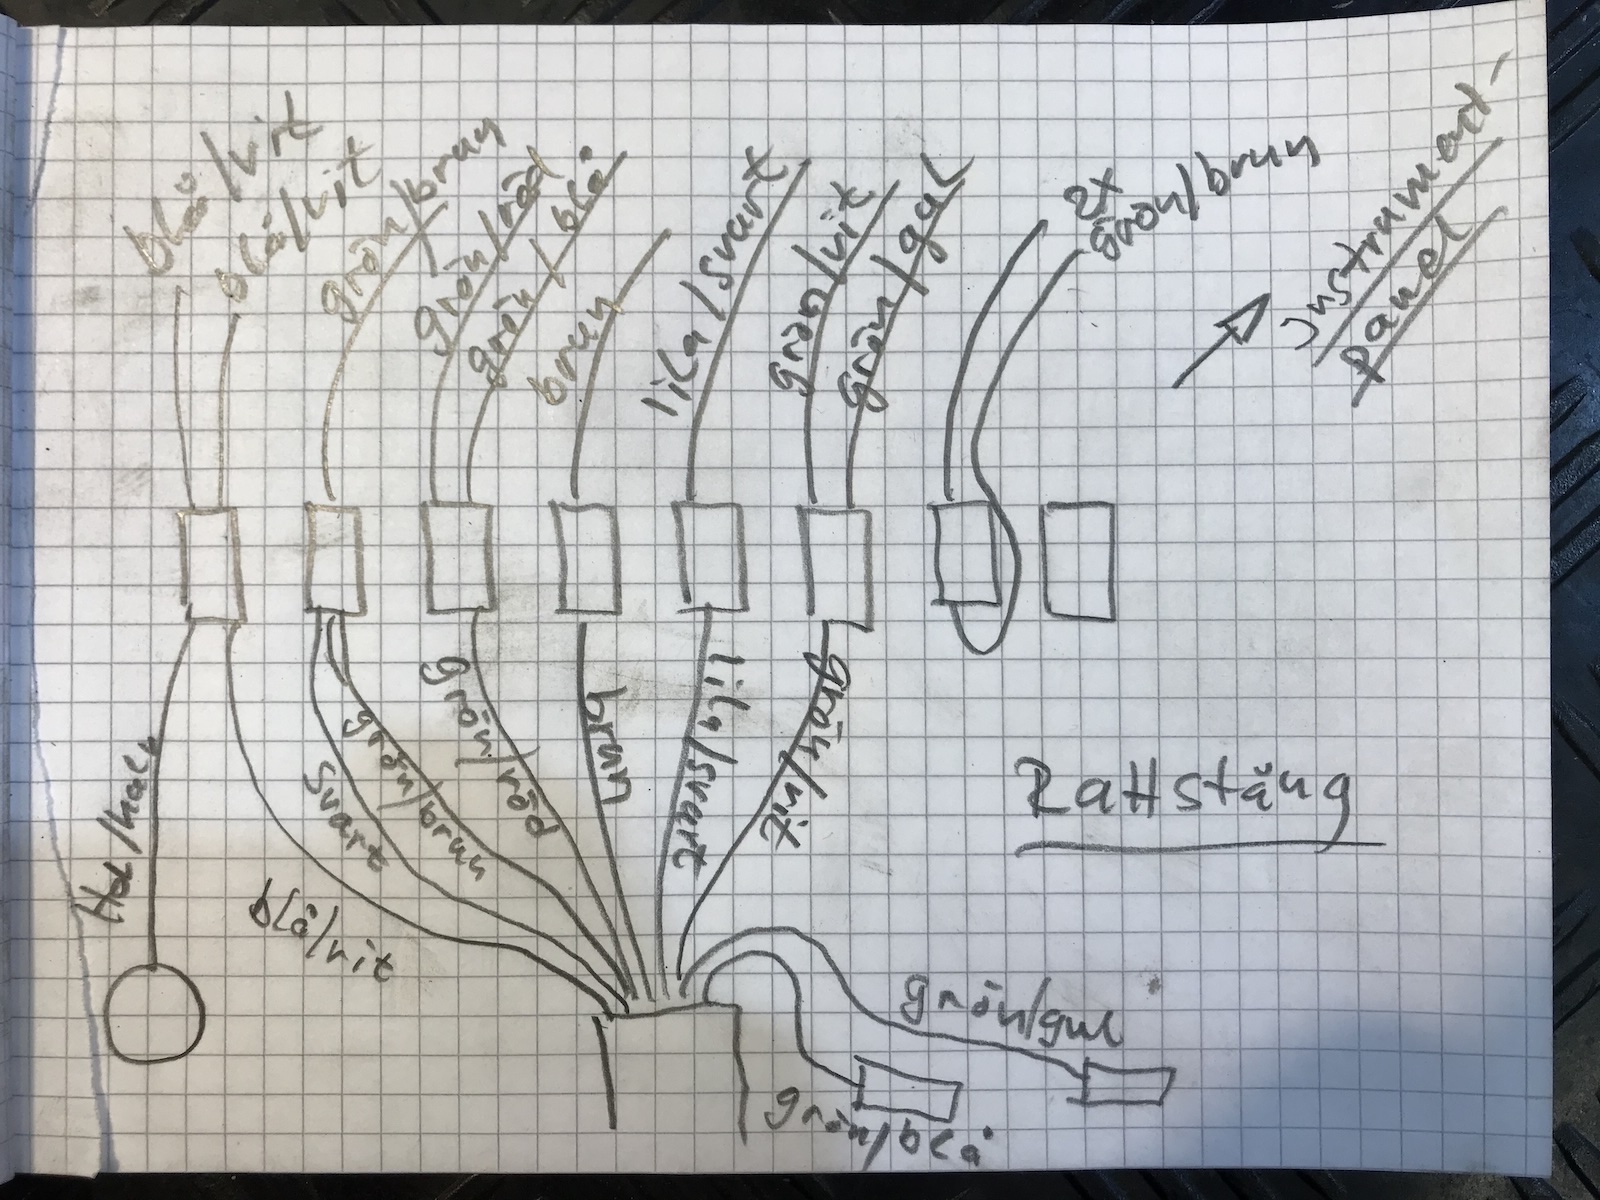 blå/vit
blå/vit
grön/brun
grön/röd
grön/blå
brun
lila/svart
grön/vit
grön/gul
2x
grön/brun
instrument-
panel
grön/brun
svart
blå/vit
grön/röd
brun
lila/svart
grön/vit
Rattstång
grön/gul
grön/blå